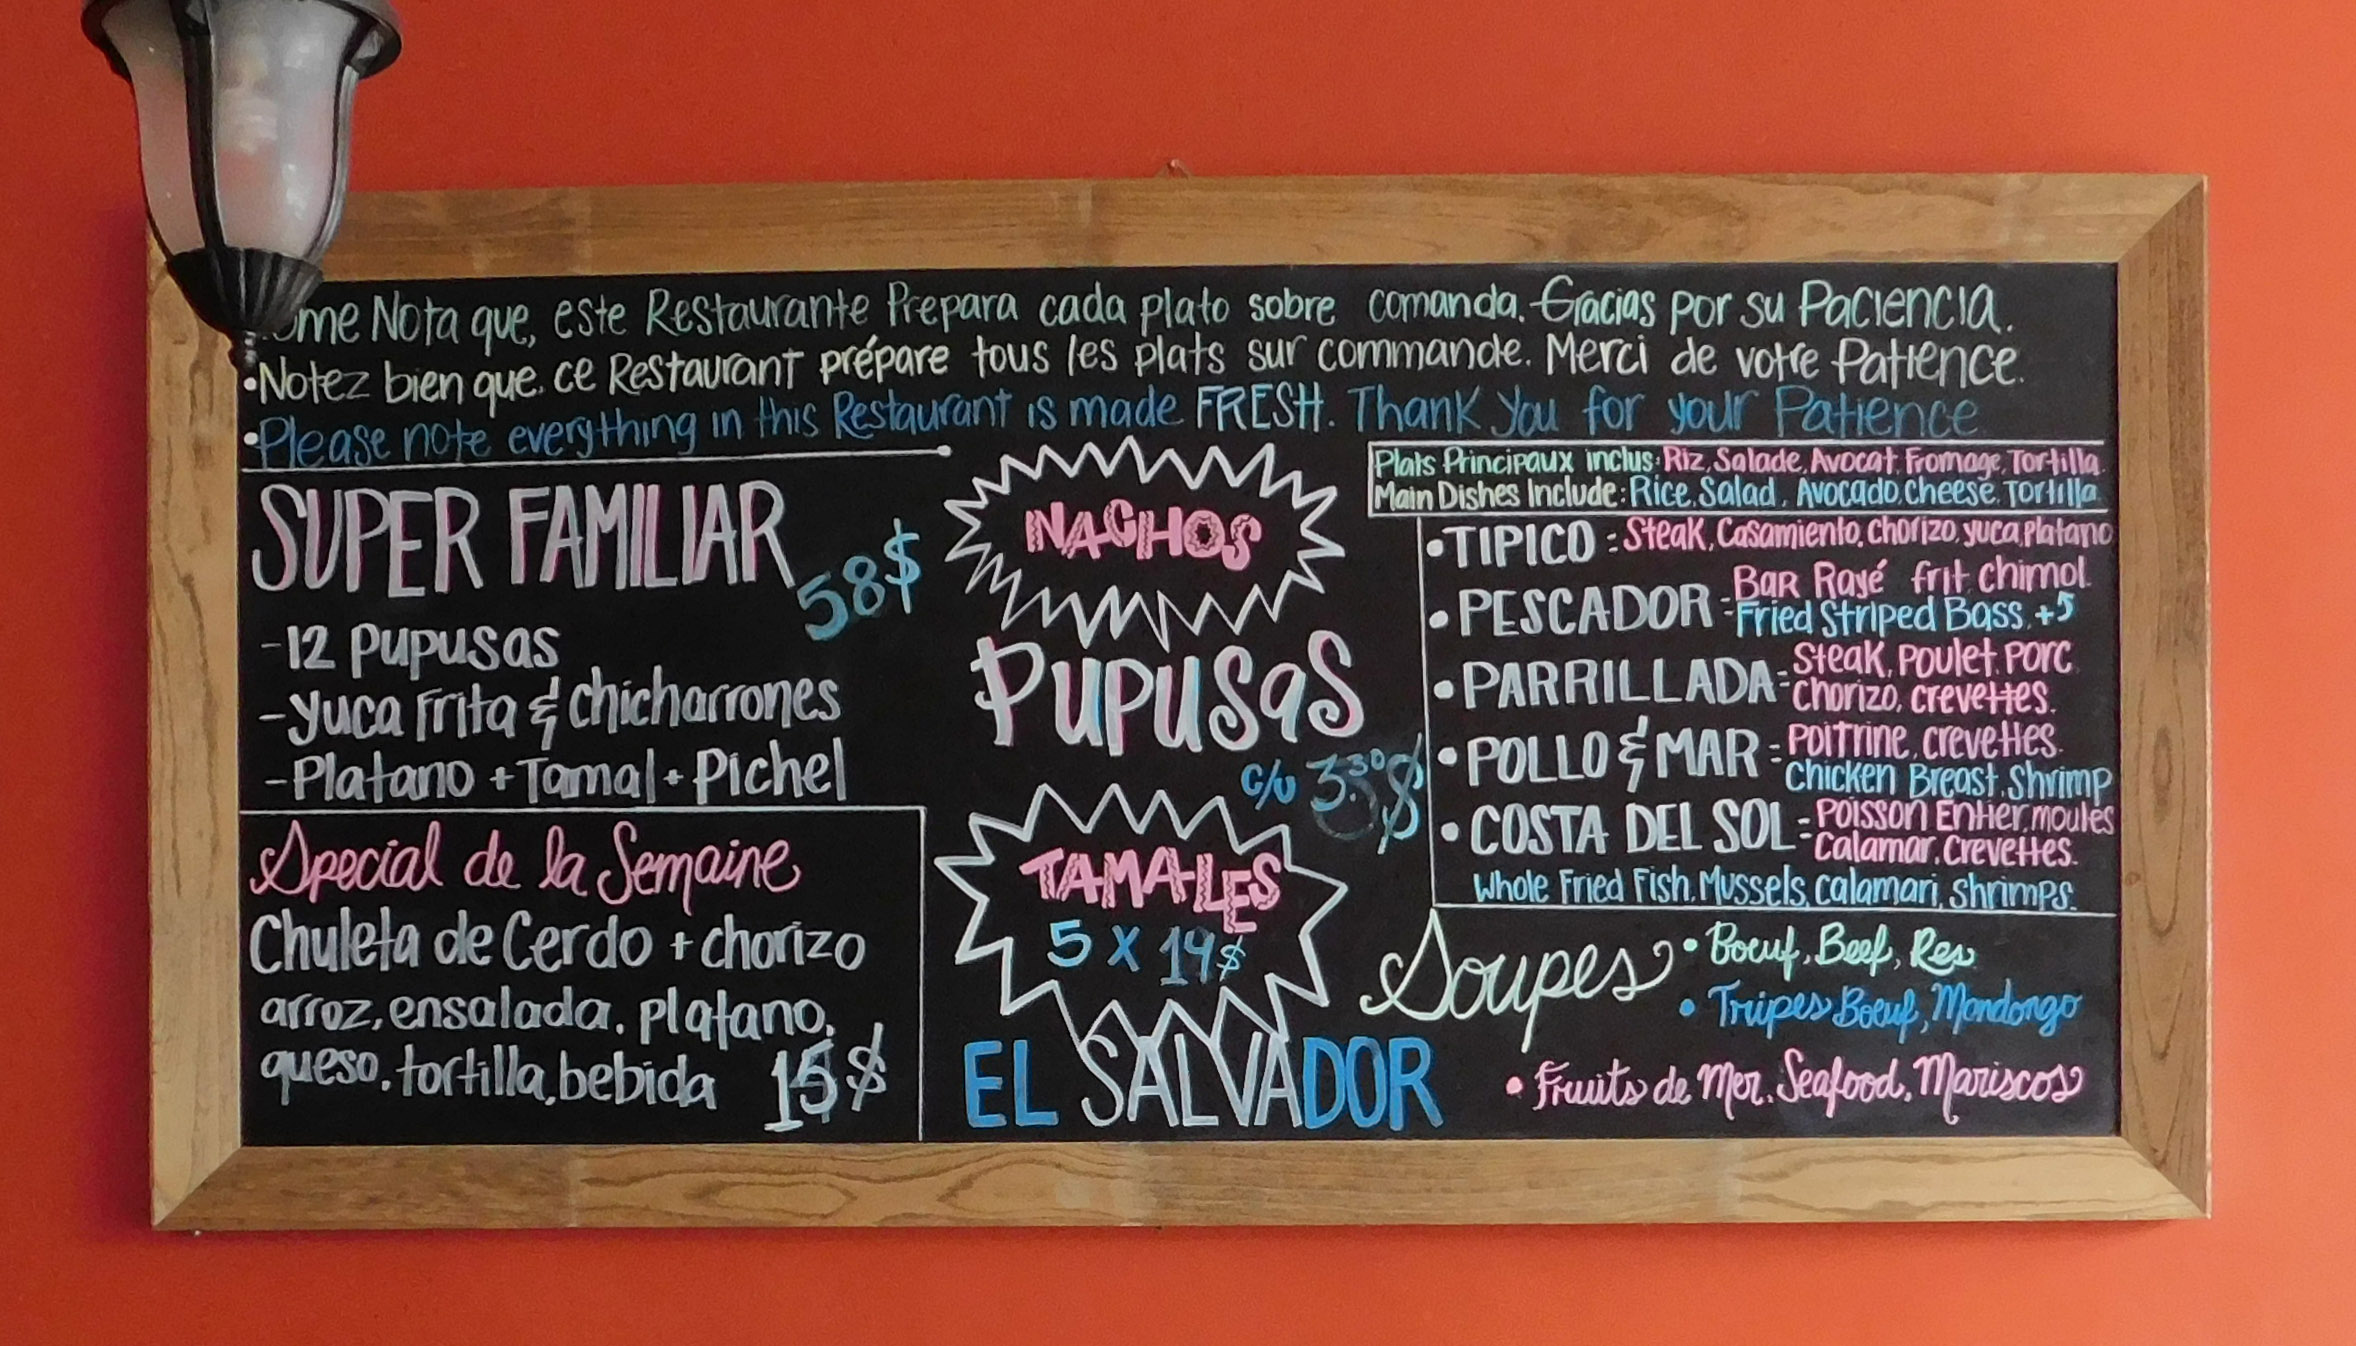 ome Nota que, este Restaurante Prepara cada plato sobre comanda. Gracias por su Paciencia.
•Notez bien que. ce Restaurant prépare tous les plats sur commande. Merci de votre Patience.
•Please note everything in this Restaurant is made FRESH. Thank You for your Patience
SUPER FAMILIAR
58$
-12 Pupusas
-Yuca Frita & chicharrones
-Platano + Tamal + Pichel
Special de la Semaine
Chuleta de Cerdo + chorizo
arroz, ensalada. platano,
queso. tortilla, bebida 15$
NACHOS
PUPUSAS
c/u
TAMALES
5 X 14$
EL SALVADOR
Plats Principaux inclus: Riz, Salade, Avocat, Fromage, Tortilla.
Main Dishes Include: Rice, Salad, Avocado, Cheese, Tortilla.
•TIPICO: Steak, Casamiento, chorizo, yuca, platano
•PESCADOR: Bar Rayé frit chimol.
Fried Striped Bass. +5
•PARRILLADA: Steak, Poulet, Porc
Chorizo, crevettes.
•POLLO & MAR: Poitrine, crevettes.
Chicken Breast, Shrimp
•COSTA DEL SOL: Poisson Entier, moules
Calamar, Crevettes.
Whole Fried Fish, Mussels, Calamari, Shrimps.
Soupes
•Boeuf, Beef, Res
•Tripes Boeuf, Mondongo
•Fruits de Mer, Seafood, Mariscos